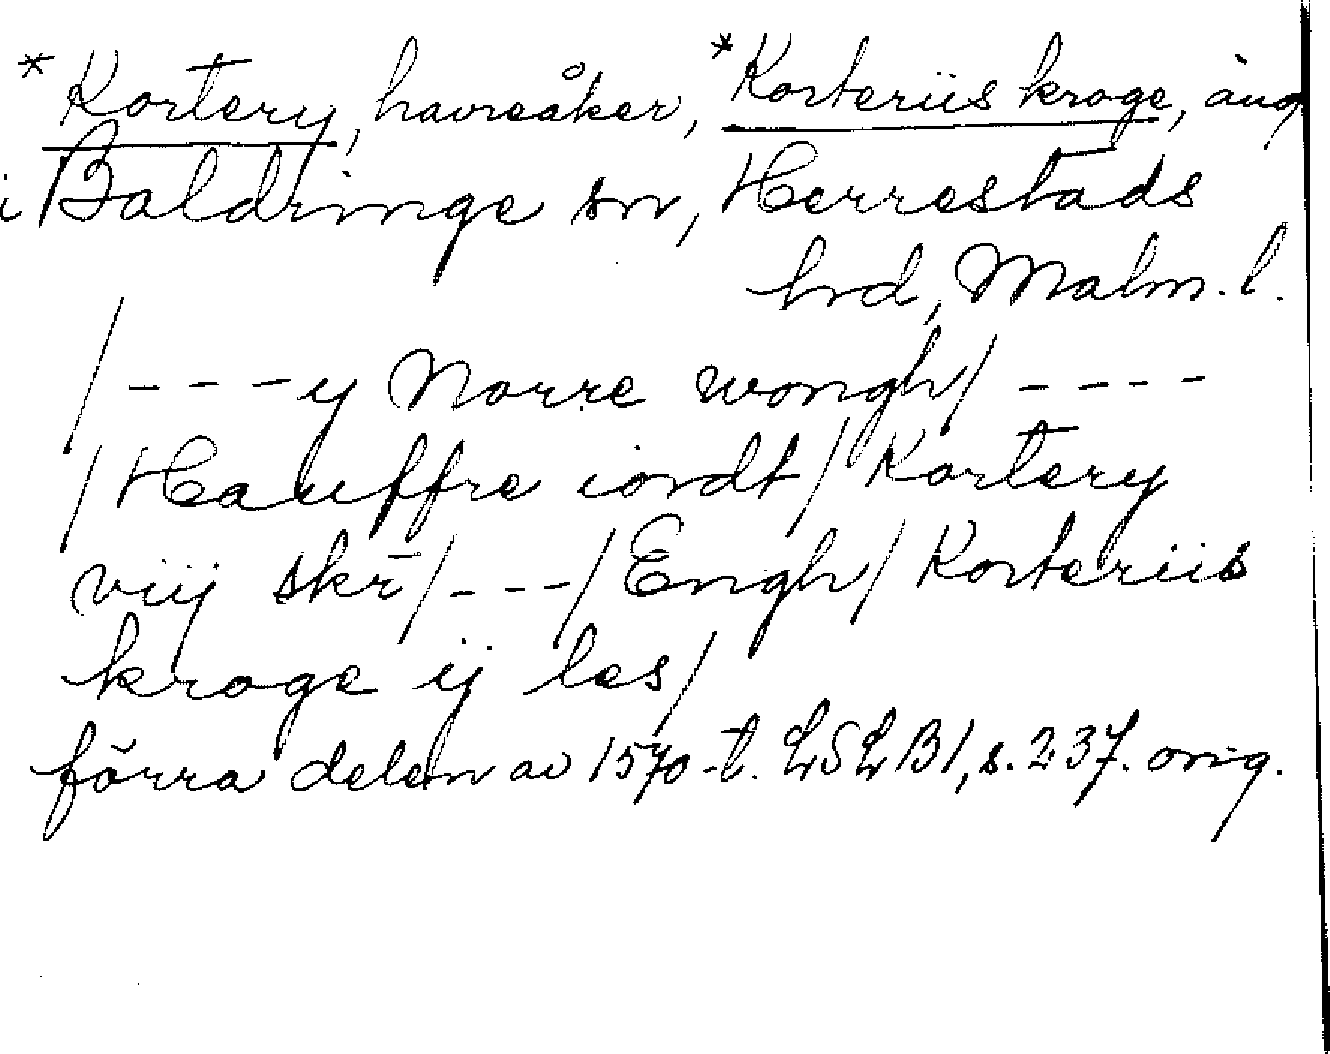 *Kortery, havreåker, *Korteriis kroge, äng
i Baldringe sn, Herrestads
hrd, Malm. l.
/ - - - y Norre wongh / - - - -
/ Hauffre iordt / Kortery
viij skr̄ / - - - / Engh / Korteriis
kroge ij les /
förra delen av 1570-t. LSLB1, s. 237. orig.